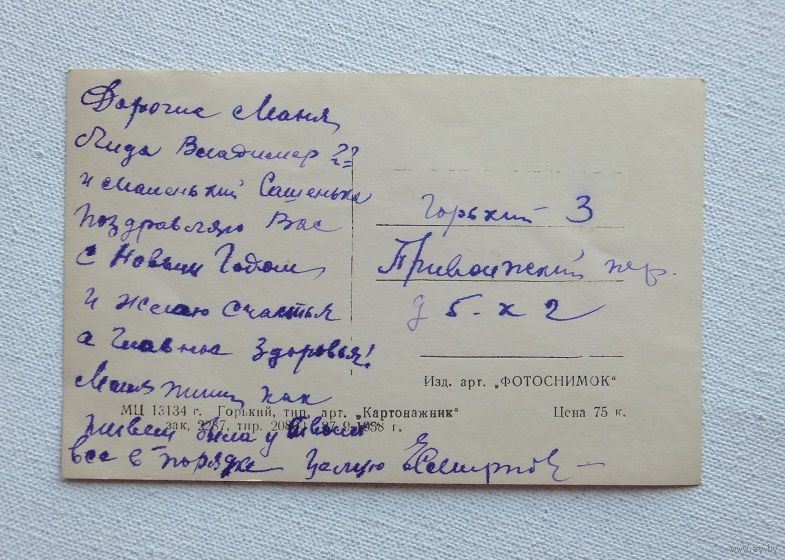 Дорогие Маня
Лида Владимер ??
и маленький Сашенька
Поздравляю Вас
с Новым Годом
и желаю счастья
а главное здоровья!
Маня пиши как
живеш была у твоих
все в порядке Целую
Горький 3
Приволжский пер.
д 5. к 2
Изд. арт. „ФОТОСНИМОК"
МЦ 13134 г. Горький, тип. арт. „Картонажник" Цена 75 к.
зак. 2787, тир. 27-9-1958 г.
www.ay.by